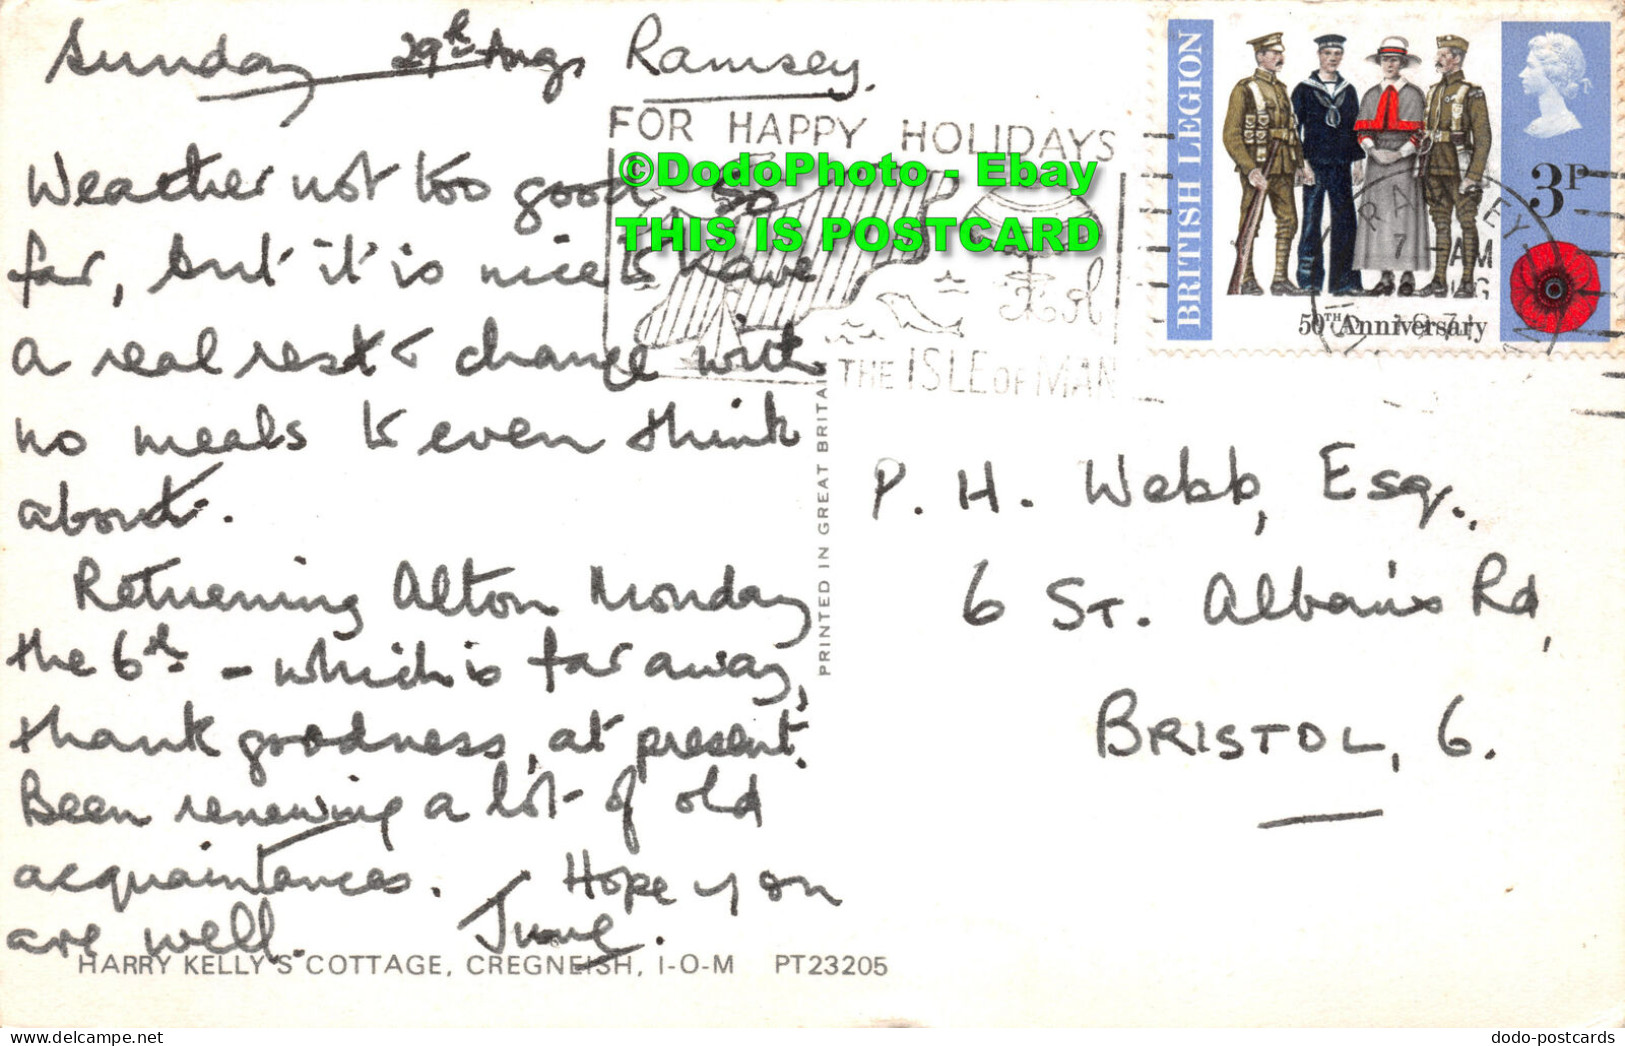 Sunday 29th Aug. Ramsey.
Weather not too good so
far, but it is nice to have
a real rest & change with
no meals to even think
about.
Returning Alton Monday
the 6th – which is far away,
thank goodness, at present.
Been renewing a lot of old
acquaintances. Hope you
are well. June.
HARRY KELLY'S COTTAGE, CREGNEISH, I-O-M PT23205
PRINTED IN GREAT BRITAIN
FOR HAPPY HOLIDAYS
THE ISLE OF MAN
©DodoPhoto - Ebay
THIS IS POSTCARD
BRITISH LEGION
3P
50TH Anniversary
RAMSEY
7 AM
AUG
1971
P. H. Webb, Esq.,
6 St. Alban's Rd,
BRISTOL, 6.
dodo-postcards